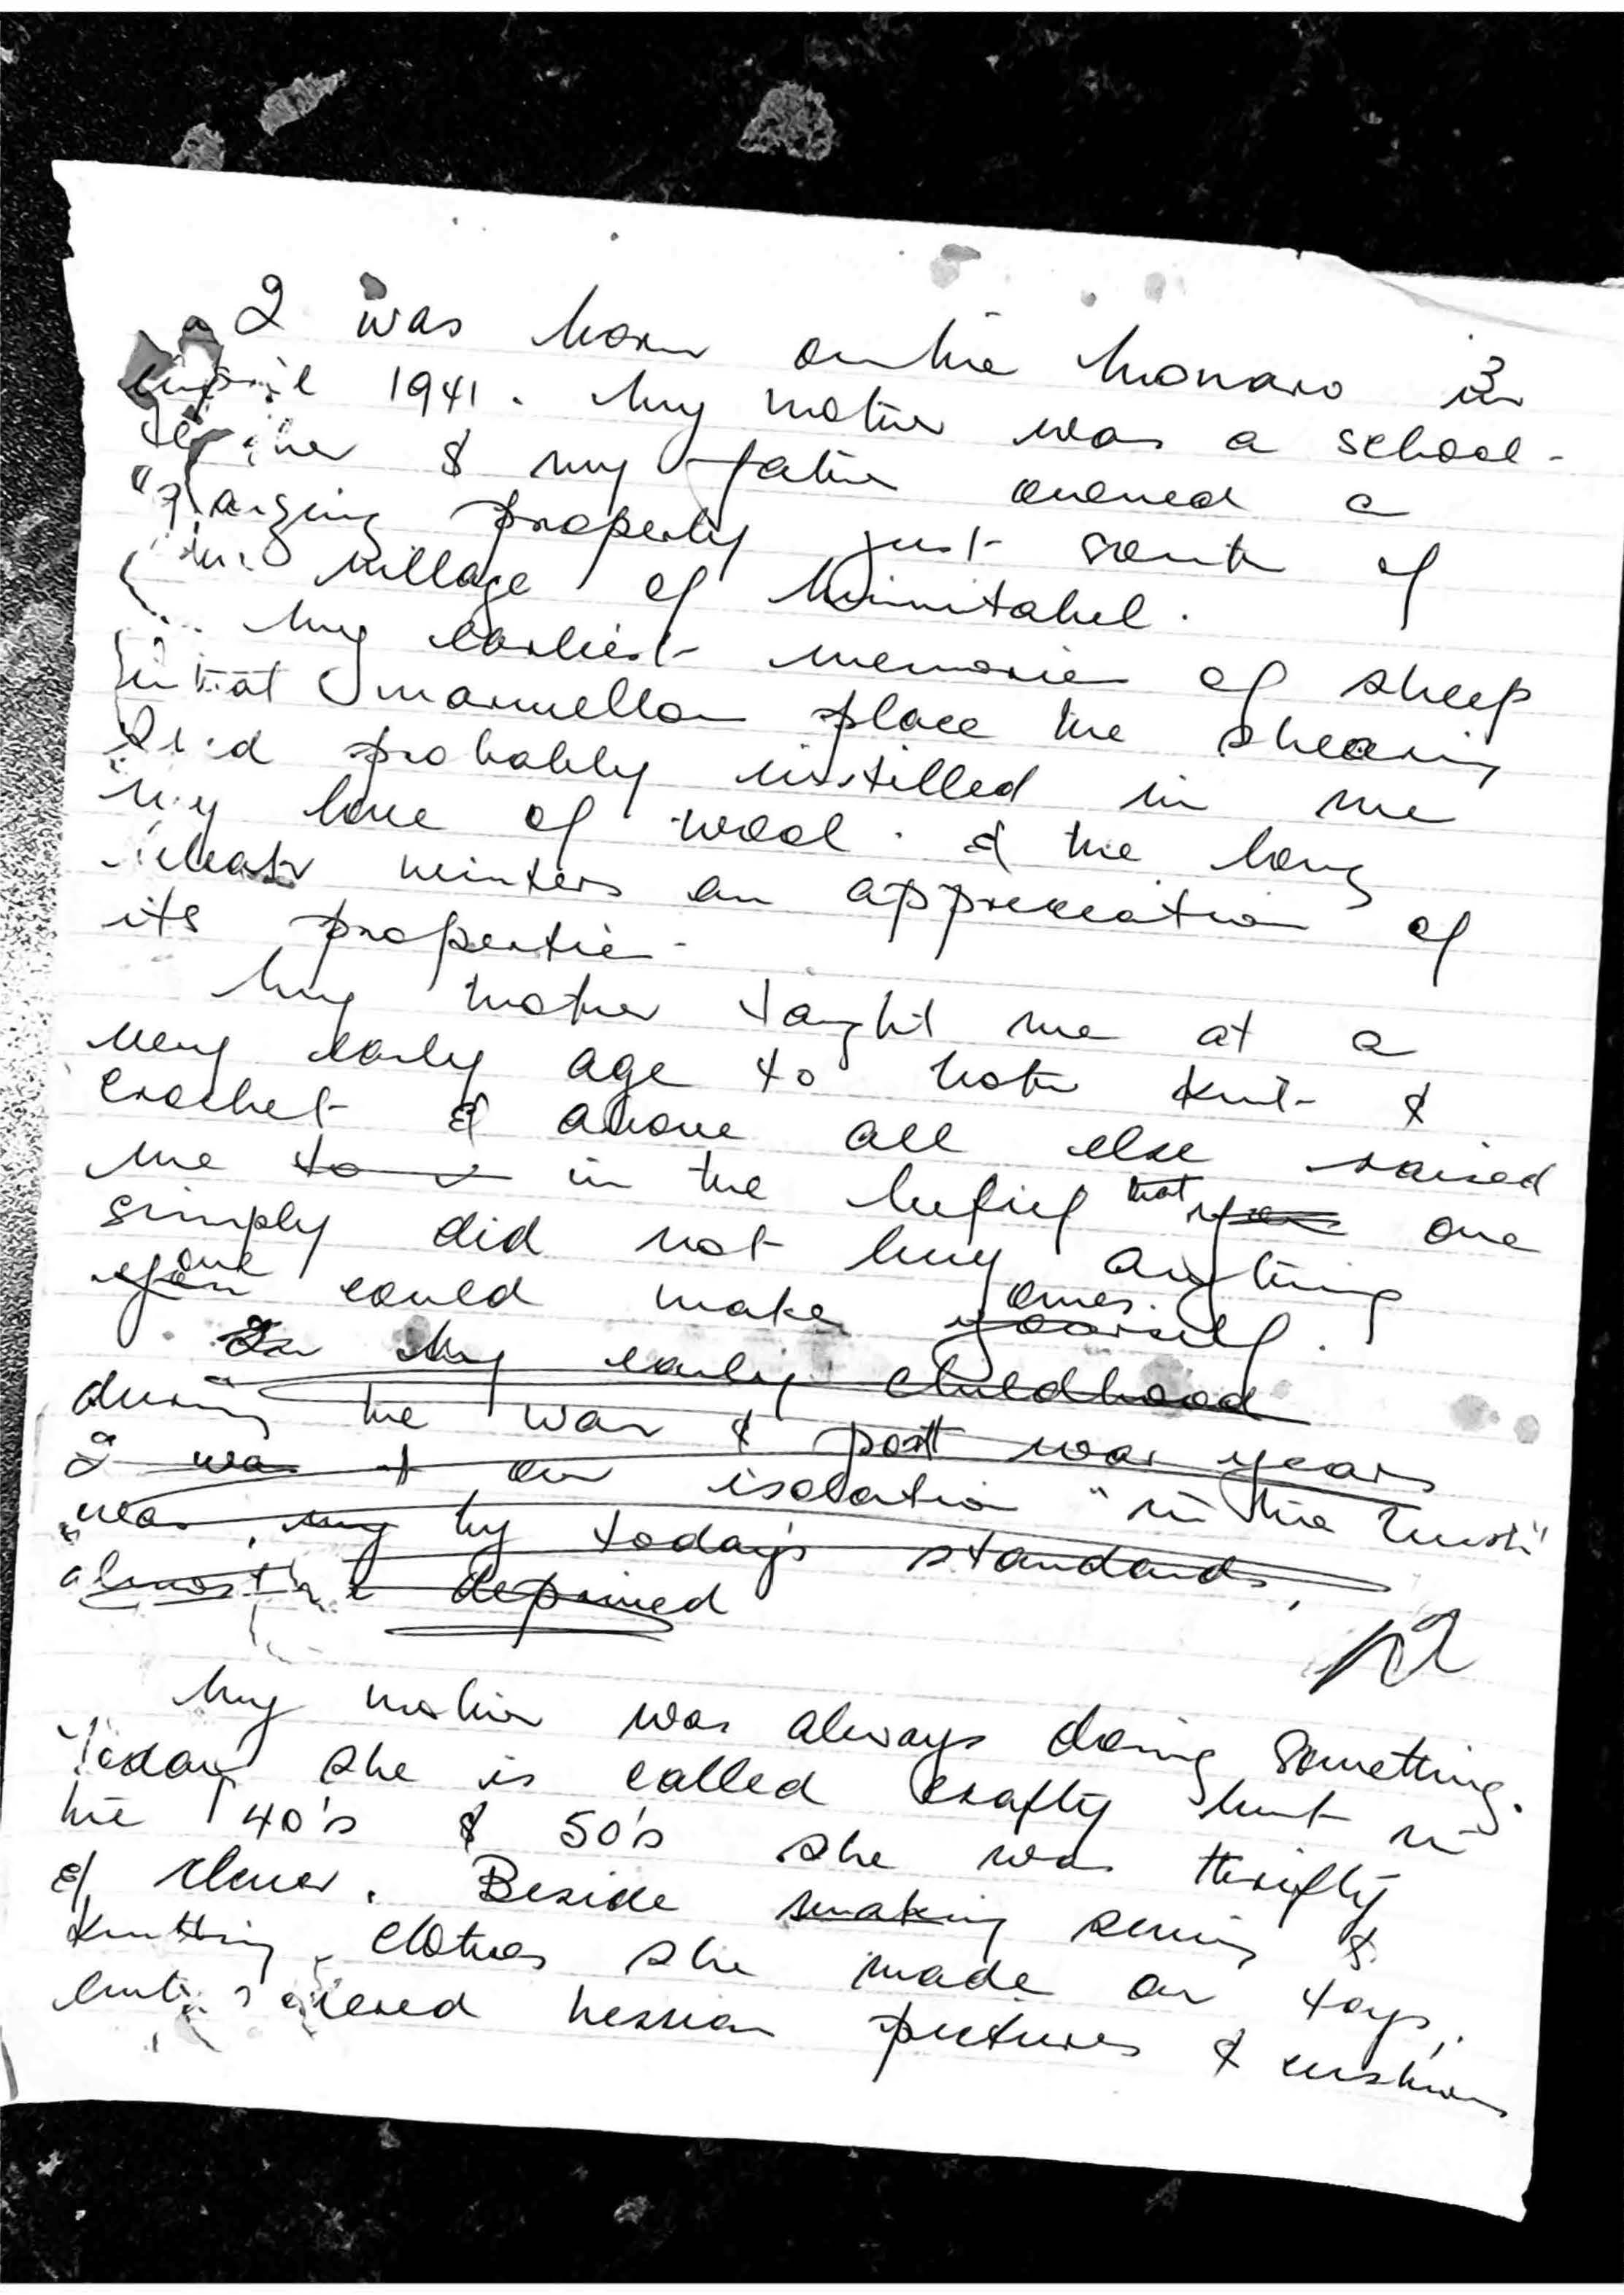 3
I was born on the Monaro in
April 1941. My mother was a school-
teacher & my father owned a
grazing property just south of
the village of Nimmitabel.
My earliest memories of sheep
in that marvellous place the shearing
shed probably instilled in me
my love of wool. & the long
bleak winters an appreciation of
its properties.
My mother taught me at a
very early age to both knit &
crochet & above all else raised
me to in the belief that you one
simply did not buy anything
you one could make yourself ones.
In My early childhood
during the war & post war years
I was & our isolation "in the bush"
was, my by today's standards,
almost deprived
p2
My mother was always doing something.
Today she is called crafty but in
the 40's & 50's she was thrifty
& clever. Beside making sewing &
knitting clothes she made our toys,
embroidered hessian pictures & cushions